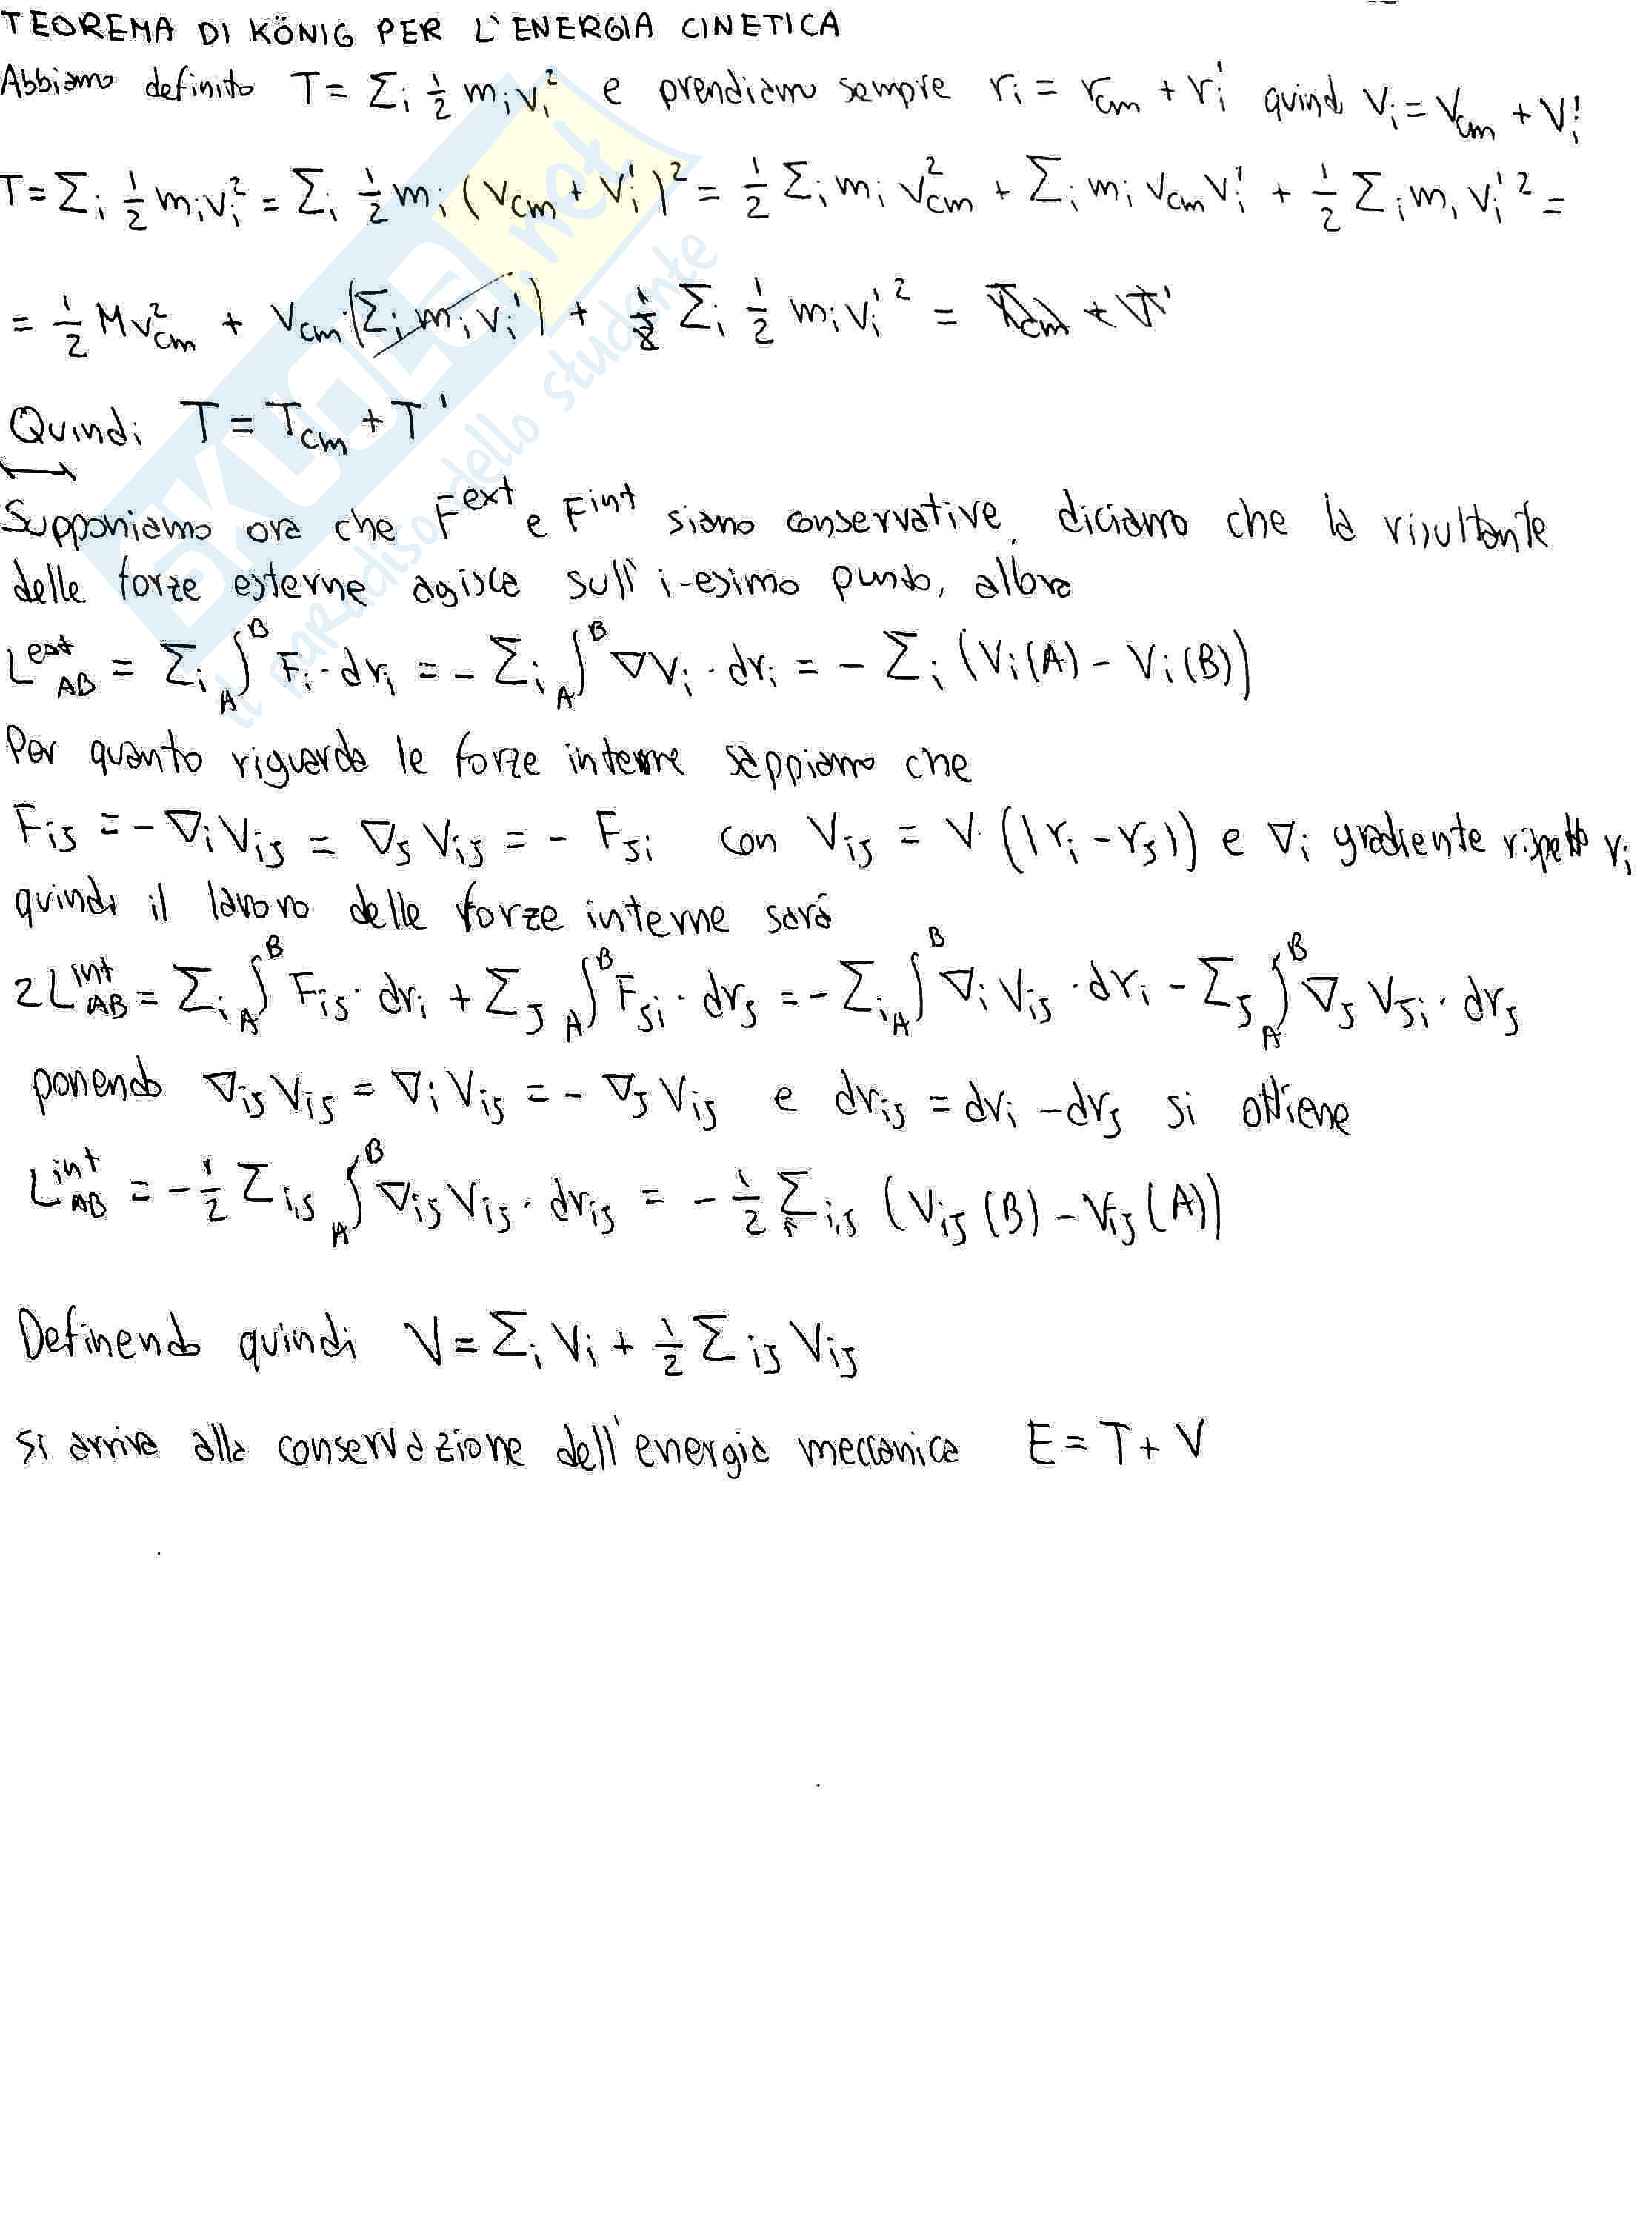 TEOREMA DI KÖNIG PER L'ENERGIA CINETICA
Abbiamo definito T = Σi ½ mivi² e prendiamo sempre ri = rcm + ri' quindi vi = vcm + vi'
T = Σi ½ mivi² = Σi ½ mi (vcm + vi')² = ½ Σi mi vcm² + Σi mi vcm vi' + ½ Σi mi vi'² =
= ½ M vcm² + vcm·(Σi mi vi') + Σi ½ mi vi'² = Tcm + T'
Quindi T = Tcm + T'
Supponiamo ora che F^ext e F^int siano conservative, diciamo che la risultante
delle forze esterne agisca sull'i-esimo punto, allora
L^ext_AB = Σi ∫_A^B Fi · dri = - Σi ∫_A^B ∇Vi · dri = - Σi (Vi(A) - Vi(B))
Per quanto riguarda le forze interne sappiamo che
Fij = - ∇i Vij = ∇j Vij = - Fji con Vij = V (|ri - rj|) e ∇i gradiente rispetto ri
quindi il lavoro delle forze interne sará
2L^int_AB = Σi ∫_A^B Fij · dri + Σj ∫_A^B Fji · drj = - Σi ∫_A^B ∇i Vij · dri - Σj ∫_A^B ∇j Vji · drj
ponendo ∇ij Vij = ∇i Vij = - ∇j Vij e drij = dri - drj si ottiene
L^int_AB = - ½ Σij ∫_A^B ∇ij Vij · drij = - ½ Σi,j (Vij(B) - Vij(A))
Definendo quindi V = Σi Vi + ½ Σij Vij
si arriva alla conservazione dell'energia meccanica E = T + V
SKUOLA.net
il paradiso dello studente